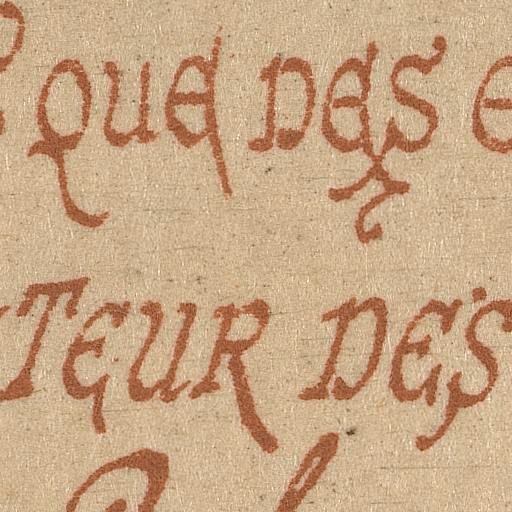 QUE DES
TEUR DES